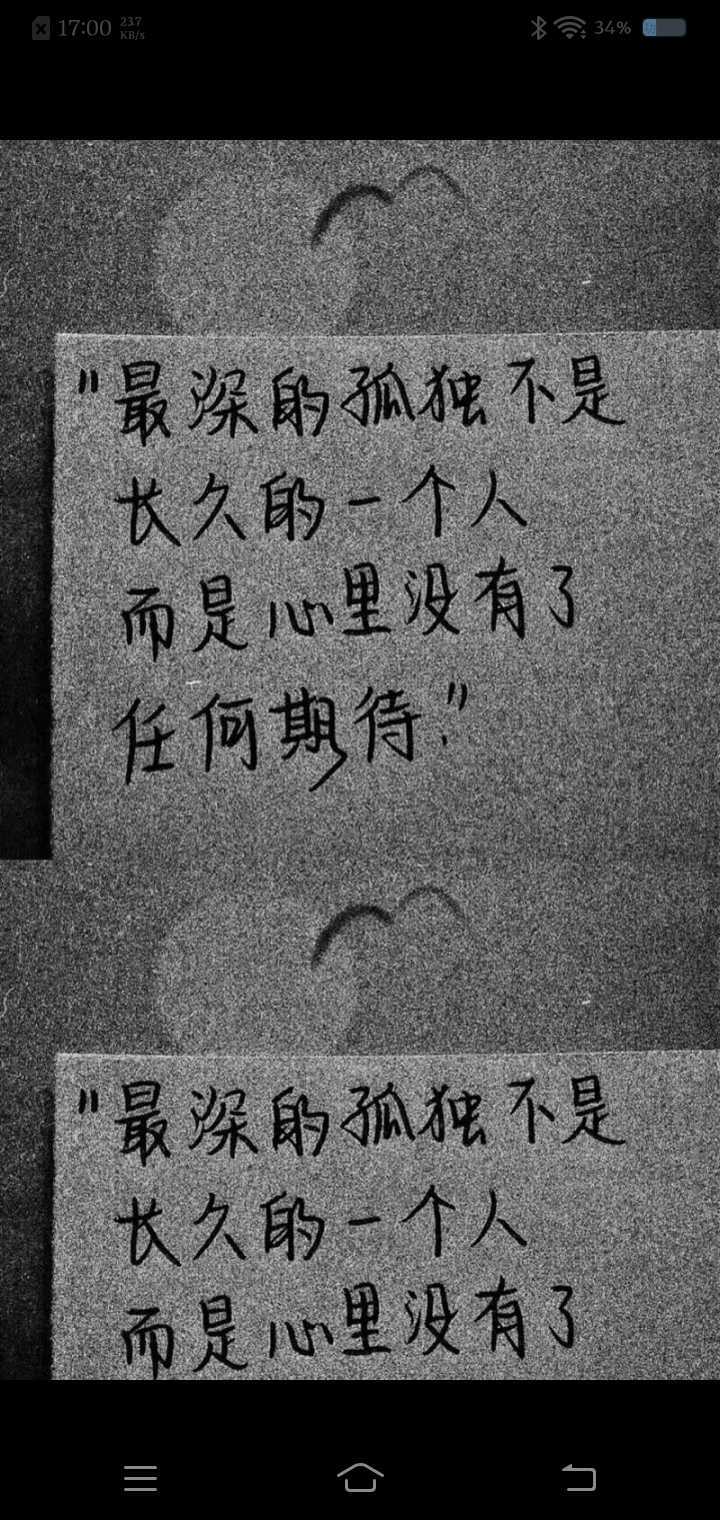 17:00
23.7
KB/s
34%
"最深的孤独不是
长久的一个人
而是心里没有了
任何期待."
"最深的孤独不是
长久的一个人
而是心里没有了